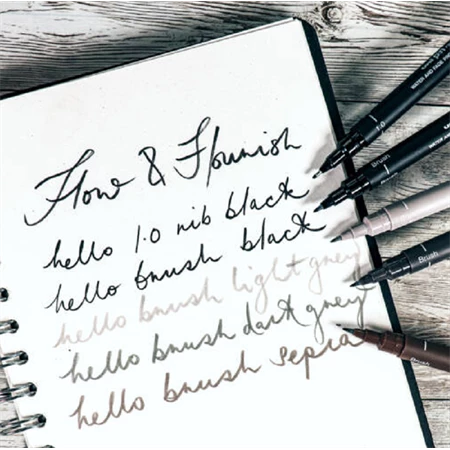 Flow & Flourish
hello 1.0 nib black
hello brush black
hello brush light grey
hello brush dark grey
hello brush sepia
1.0
Brush
Brush
Brush